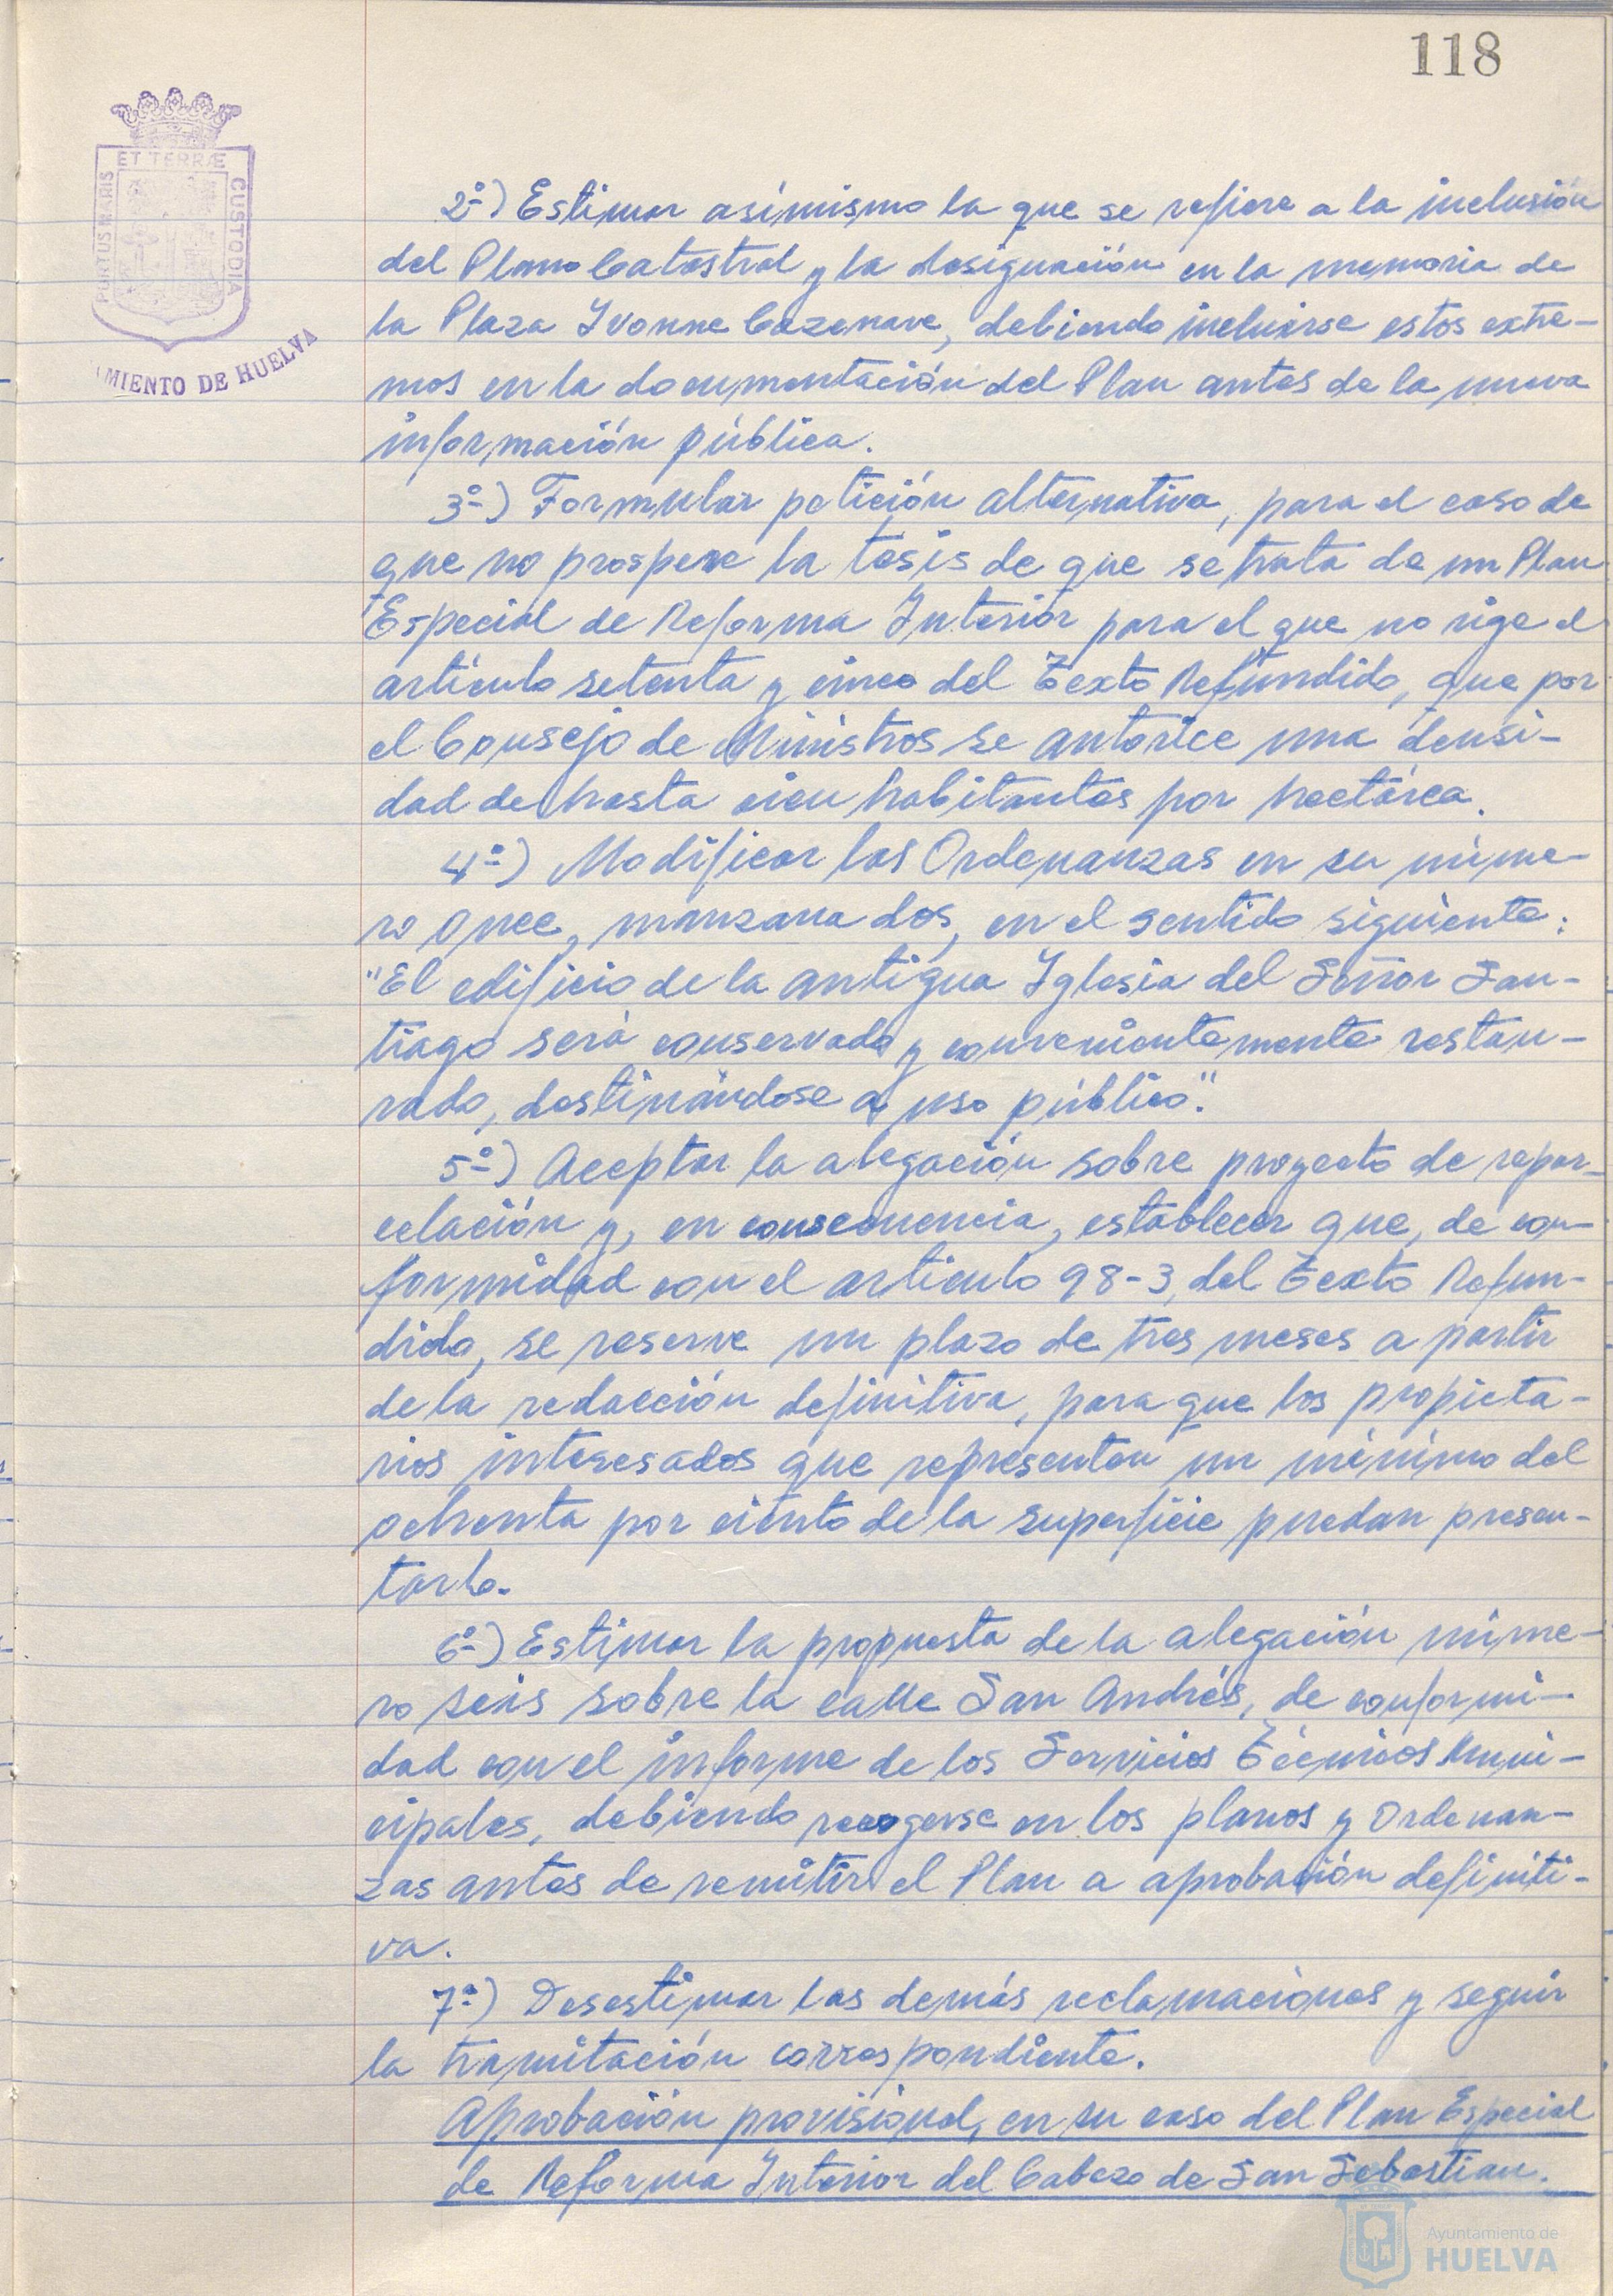 118
ET TERRÆ
PORTUS MARIS
CUSTODIA
MIENTO DE HUELVA
2º-) Estimar asímismo la que se refiere a la inclusión
del Plano Catastral y la designación en la memoria de
la Plaza Ivonne Cazenave, debiendo incluirse estos extre-
mos en la documentación del Plan antes de la nueva
información pública.
3º-) Formular petición alternativa, para el caso de
que no prospere la tesis de que se trata de un Plan
Especial de Reforma Interior para el que no rige el
artículo setenta y cinco del Texto Refundido, que por
el Consejo de Ministros se autorice una densi-
dad de hasta cien habitantes por hectárea.
4º-) Modificar las Ordenanzas en su núme-
ro once, manzana dos, en el sentido siguiente:
"El edificio de la antigua Iglesia del Señor San-
tiago será conservado y convenientemente restau-
rado, destinándose a uso público".
5º-) Aceptar la alegación sobre proyecto de repar-
celación y, en consecuencia, establecer que, de con-
formidad con el artículo 98-3, del Texto Refun-
dido, se reserve un plazo de tres meses a partir
de la redacción definitiva, para que los propieta-
rios interesados que representen un mínimo del
ochenta por ciento de la superficie puedan presen-
tarlo.
6º-) Estimar la propuesta de la alegación núme-
ro seis sobre la calle San Andrés, de conformi-
dad con el informe de los Servicios Técnicos Muni-
cipales, debiendo recogerse en los planos y Ordenan-
zas antes de remitir el Plan a aprobación definiti-
va.
7º-) Desestimar las demás reclamaciones y seguir
la tramitación correspondiente.
Aprobación provisional, en su caso del Plan Especial
de Reforma Interior del Cabezo de San Sebastian.
Ayuntamiento de
HUELVA